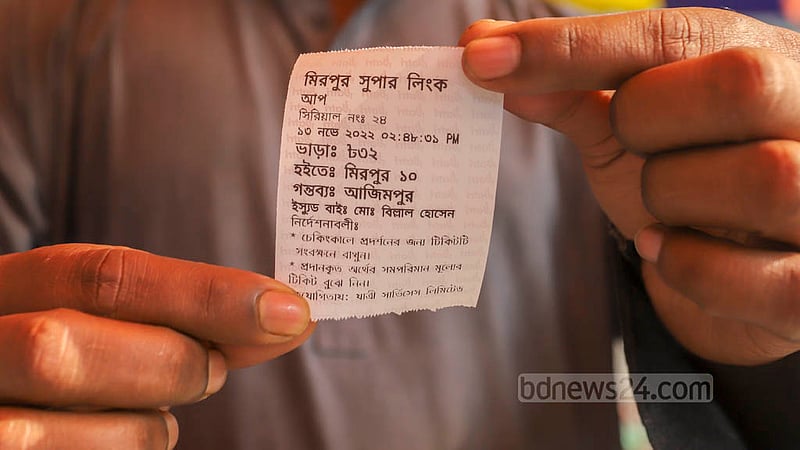 মিরপুর সুপার লিংক
আপ
সিরিয়াল নংঃ ২৪
১৩ নভে ২০২২ ০২:৪৮:৩১ PM
ভাড়াঃ ৳৩২
হইতেঃ মিরপুর ১০
গন্তব্যঃ আজিমপুর
ইস্যুড বাইঃ মোঃ বিল্লাল হোসেন
নির্দেশনাবলীঃ
* চেকিংকালে প্রদর্শনের জন্য টিকিটটি
সংরক্ষনে রাখুন।
* প্রদানকৃত অর্থের সমপরিমান মূল্যের
টিকিট বুঝে নিন।
যাত্রী সার্ভিসেস লিমিটেড
bdnews24.com